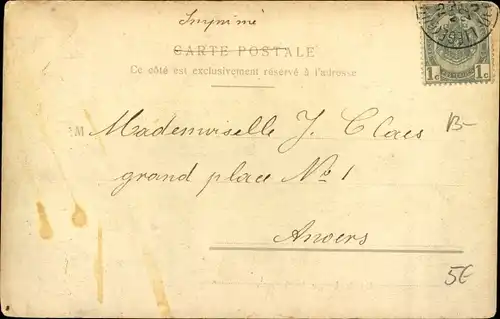 Imprimé
CARTE POSTALE
Ce côté est exclusivement réservé à l'adresse
M Mademoiselle J. Claes
grand place No 1
Anvers
1c 1c
B-
5E